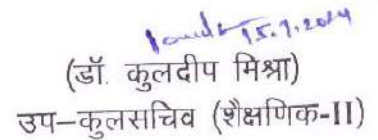 15.7.2024
(डॉ. कुलदीप मिश्रा)
उप–कुलसचिव (शैक्षणिक-II)